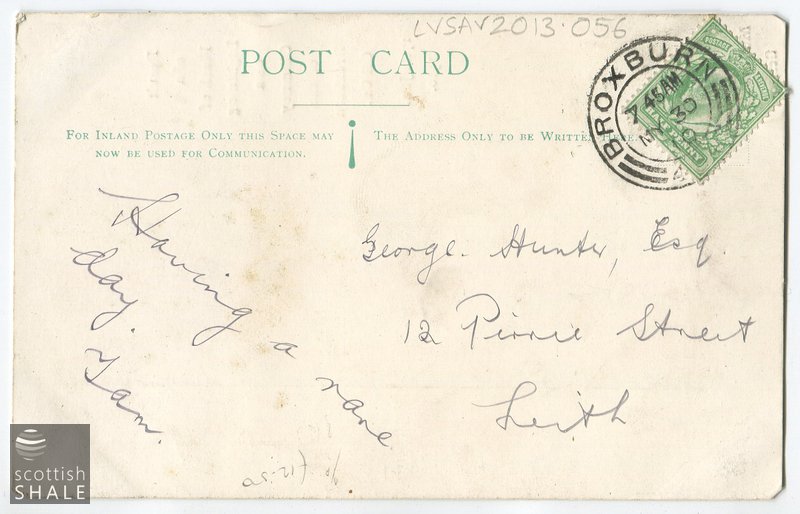 LVSAV2013.056
POST CARD
FOR INLAND POSTAGE ONLY THIS SPACE MAY
NOW BE USED FOR COMMUNICATION.
THE ADDRESS ONLY TO BE WRITTEN HERE
BROXBURN
7 45AM
MY 30
10
POSTAGE
Having a rare
day.
Tam.
George. Hunter, Esq.
12 Pirrie Street
Leith
scottish
SHALE